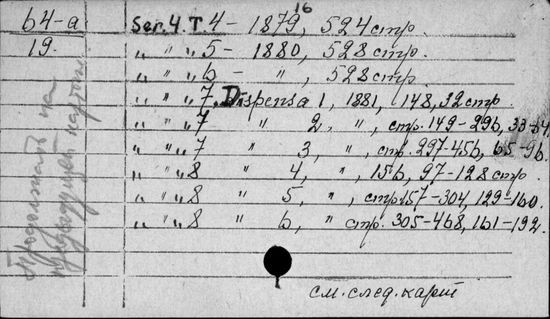 64-а
19.
Ser. 4. T. 4 - 1879, 16 524 стр.
„ „ „ 5 - 1880, 528 стр.
„ „ „ 6 - „ , 528 стр.
„ „ „ 7. Dispensa 1, 1881, 148, 32 стр.
„ „ „ 7 „ 2, „ , стр. 149-296, 33-64
„ „ „ 7 „ 3, „ , стр. 297-456, 65-96.
„ „ „ 8 „ 4, „ , 156, 97-128 стр.
„ „ „ 8 „ 5, „ , стр 157-304, 129-160.
„ „ „ 8 „ 6, „ стр. 305-468, 161-192.
см. след. карт
Продолжать на
предыдущей карточке